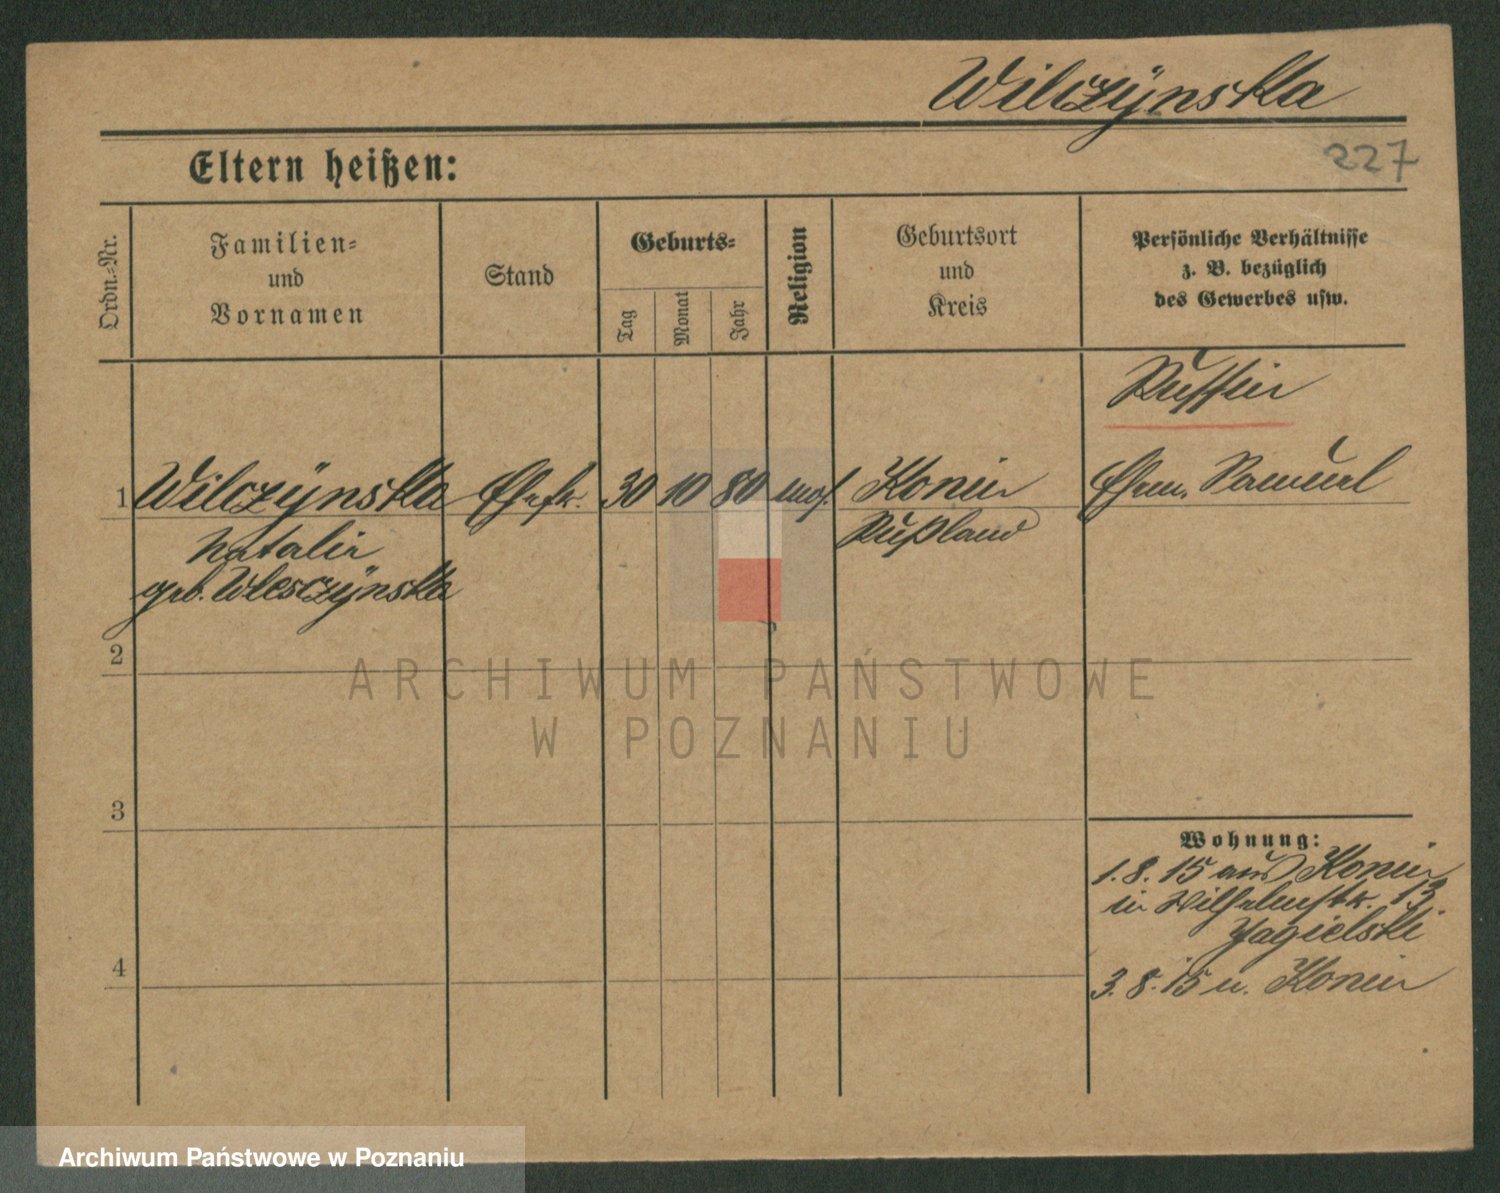 Wilczÿnska
227
Eltern heißen:
Ordn.-Nr.
Familien-
und
Vornamen
Stand
Geburts-
Tag
Monat
Jahr
Religion
Geburtsort
und
Kreis
Persönliche Verhältnisse
z. B. bezüglich
des Gewerbes usw.
Russin
1 Wilczÿnska Ehefr. 30 10 80 mos. Konin Ehem. Samuel
Natalie Rußland
geb. Wlesczÿnska
2
3
4
Wohnung:
1. 8. 15 aus Konin
in Wilhelmstr. 13
Jagielski
3. 8. 15 n. Konin
ARCHIWUM PAŃSTWOWE
W POZNANIU
Archiwum Państwowe w Poznaniu